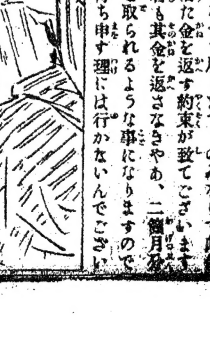 た金を返す約束が致てございます
も其金を返さなきやあ、二箇月分
取られるような事になりますので
ち申す理には行かないんでござい